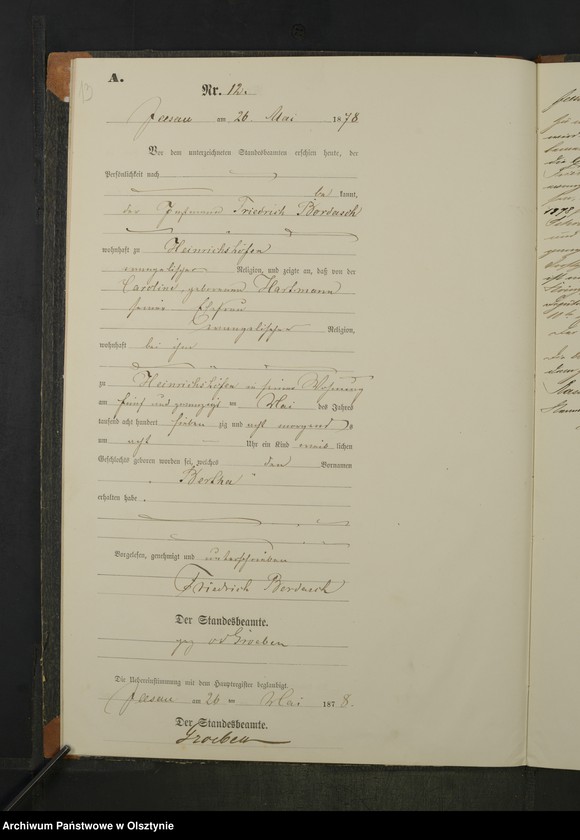 A.
13
Nr. 12.
am 26 Mai 1878.
Vor dem unterzeichneten Standesbeamten erschien heute, der
Persönlichkeit nach
be kannt,
der Friedrich Bordasch
wohnhaft zu Heinrichshöfen
evangelischer Religion, und zeigte an, daß von der
Caroline, geborenen Hartmann
seiner Ehefrau
evangelischer Religion,
wohnhaft bei ihm
zu Heinrichshöfen in seiner Wohnung
am fünf und zwanzigs ten Mai des Jahres
tausend acht hundert sieben zig und acht morgens
um acht Uhr ein Kind weib lichen
Geschlechts geboren worden sei, welches den Vornamen
"Bertha"
erhalten habe.
Vorgelesen, genehmigt und unterschrieben
Friedrich Bordasch
Der Standesbeamte.
gez. Groeben
Die Uebereinstimmung mit dem Hauptregister beglaubigt.
am 26 ten Mai 1878.
Der Standesbeamte.
Groeben
Archiwum Państwowe w Olsztynie